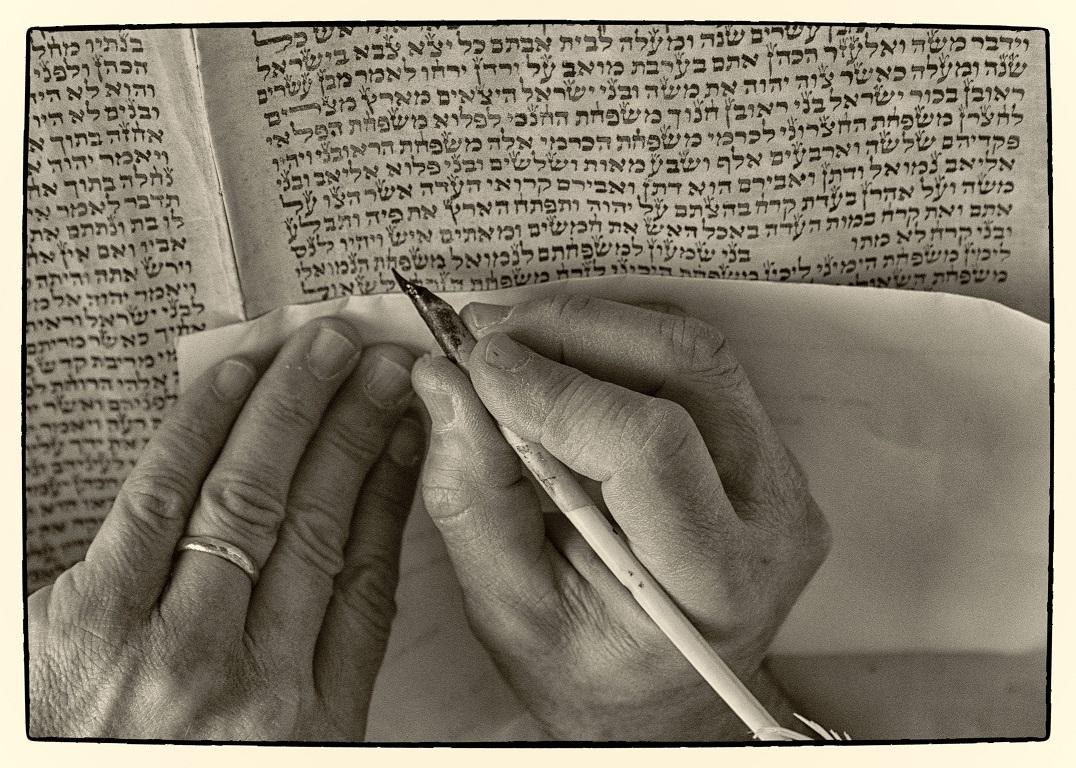 בן עשרים שנה ומעלה לבית אבתם כל יצא צבא בישראל
וידבר משה ואלעזר הכהן אתם בערבת מואב על ירדן ירחו לאמר מבן עשרים
שנה ומעלה כאשר צוה יהוה את משה ובני ישראל היצאים מארץ מצרים
ראובן בכור ישראל בני ראובן חנוך משפחת החנכי לפלוא משפחת הפלאי
לחצרן משפחת החצרוני לכרמי משפחת הכרמי אלה משפחת הראובני ויהיו
פקדיהם שלשה וארבעים אלף ושבע מאות ושלשים ובני פלוא אליאב ובני
אליאב נמואל ודתן ואבירם הוא דתן ואבירם קרואי העדה אשר הצו על
משה ועל אהרן בעדת קרח בהצתם על יהוה ותפתח הארץ את פיה ותבלע
אתם ואת קרח במות העדה באכל האש את חמשים ומאתים איש ויהיו לנס
ובני קרח לא מתו
בני שמעון למשפחתם לנמואל משפחת הנמואלי
לימין משפחת הימיני ליכין משפחת היכיני לזרח משפחת הזרחי לשאול
משפחת השאולי
בנתיו מחל
הכהן ולפני
והוא לא היה
ובנים לא היו
אחזה בתוך
ויאמר יהוה
נחלה בתוך
תדבר לאמר
לו בת ונתתם
אביו ואם אין
וירש אתה והיתה
ויאמר יהוה אל
לבני ישראל וראית
אחיך כאשר מריתם
מי מריבת קדש
אלהי הרוחת
לפניהם ואשר